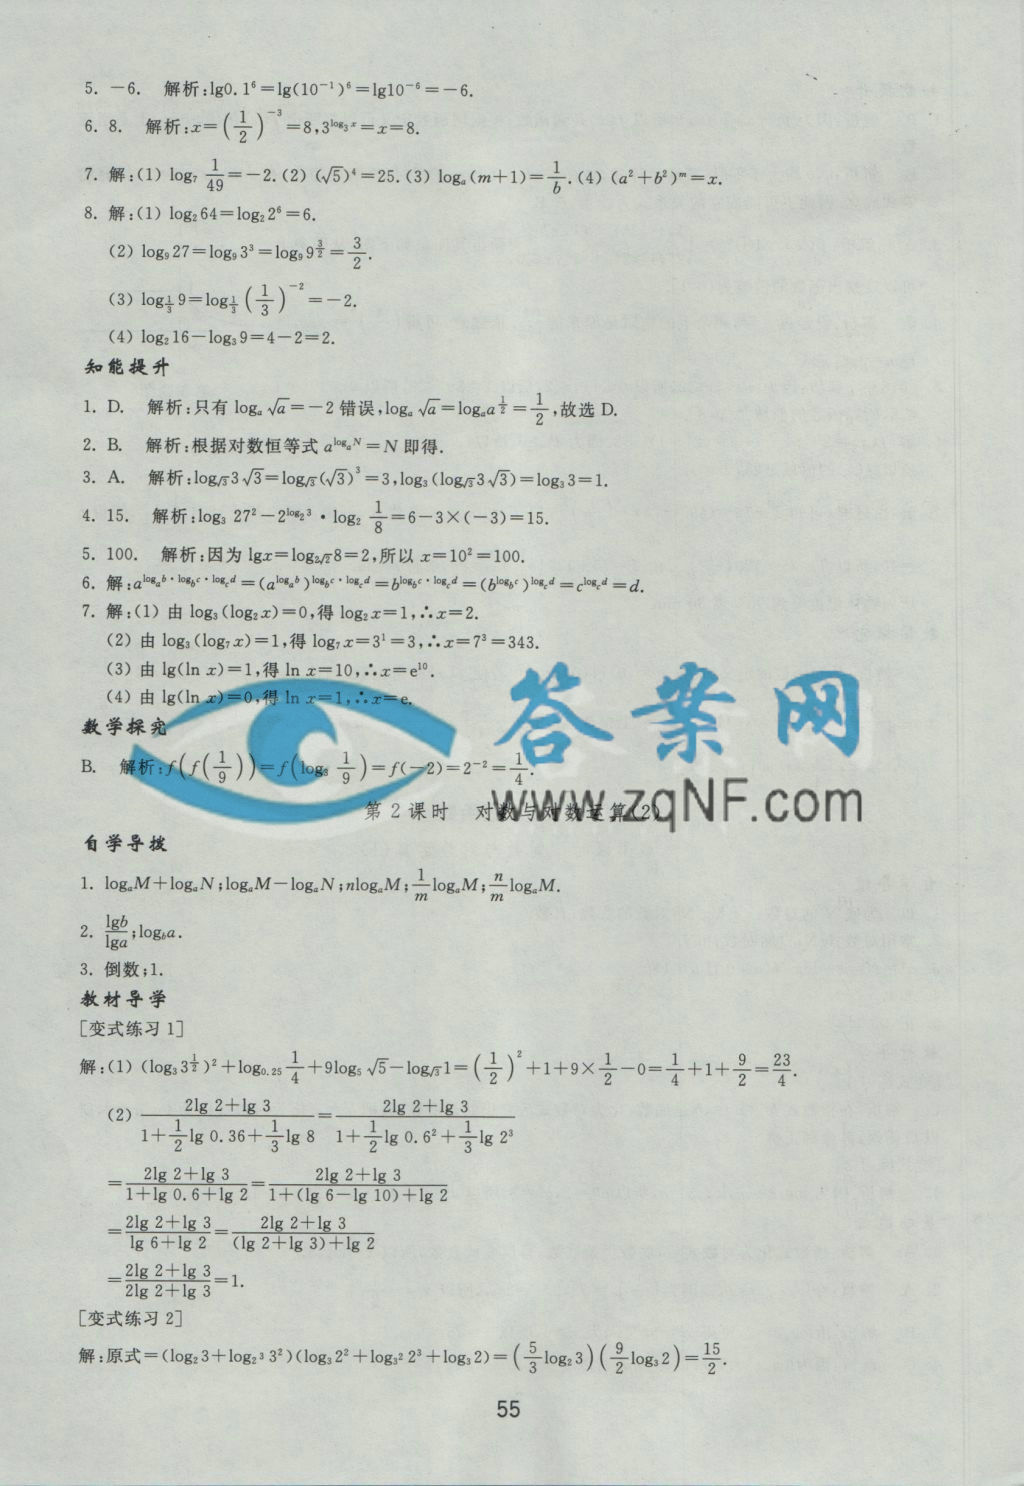 5. －6.　解析:lg0.1⁶＝lg(10⁻¹)⁶＝lg10⁻⁶＝－6.
6. 8.　解析:x＝(1/2)⁻³＝8,3^(log₃x)＝x＝8.
7. 解:(1) log₇ 1/49＝－2.(2) (√5)⁴＝25.(3) logₐ(m＋1)＝1/b.(4) (a²＋b²)ᵐ＝x.
8. 解:(1) log₂64＝log₂2⁶＝6.
(2) log₉27＝log₉3³＝log₉9^(3/2)＝3/2.
(3) log_(1/3)9＝log_(1/3)(1/3)⁻²＝－2.
(4) log₂16－log₃9＝4－2＝2.
知能提升
1. D.　解析:只有 logₐ√a＝－2 错误,logₐ√a＝logₐa^(1/2)＝1/2,故选 D.
2. B.　解析:根据对数恒等式 a^(logₐN)＝N 即得.
3. A.　解析:log_(√3)3√3＝log_(√3)(√3)³＝3,log₃(log_(√3)3√3)＝log₃3＝1.
4. 15.　解析:log₃ 27²－2^(log₂3)·log₂ 1/8＝6－3×(－3)＝15.
5. 100.　解析:因为 lgx＝log_(2√2)8＝2,所以 x＝10²＝100.
6. 解:a^(logₐb·log_b c·log_c d)＝(a^(logₐb))^(log_b c·log_c d)＝b^(log_b c·log_c d)＝(b^(log_b c))^(log_c d)＝c^(log_c d)＝d.
7. 解:(1) 由 log₃(log₂x)＝0,得 log₂x＝1,∴x＝2.
(2) 由 log₃(log₇x)＝1,得 log₇x＝3¹＝3,∴x＝7³＝343.
(3) 由 lg(ln x)＝1,得 ln x＝10,∴x＝e¹⁰.
(4) 由 lg(ln x)＝0,得 ln x＝1,∴x＝e.
答案网
数学探究
B.　解析:f(f(1/9))＝f(log₃ 1/9)＝f(－2)＝2⁻²＝1/4.
www.zqNF.com
第 2 课时　对数与对数运算(2)
自学导拨
1. logₐM＋logₐN;logₐM－logₐN;nlogₐM;1/m logₐM;n/m logₐM.
2. lgb/lga;log_b a.
3. 倒数;1.
教材导学
[变式练习 1]
解:(1) (log₃3^(1/2))²＋log₀.₂₅ 1/4＋9log₅√5－log_(√3)1＝(1/2)²＋1＋9×1/2－0＝1/4＋1＋9/2＝23/4.
(2) (2lg 2＋lg 3)/(1＋1/2 lg 0.36＋1/3 lg 8)＝(2lg 2＋lg 3)/(1＋1/2 lg 0.6²＋1/3 lg 2³)
＝(2lg 2＋lg 3)/(1＋lg 0.6＋lg 2)＝(2lg 2＋lg 3)/(1＋(lg 6－lg 10)＋lg 2)
＝(2lg 2＋lg 3)/(lg 6＋lg 2)＝(2lg 2＋lg 3)/((lg 2＋lg 3)＋lg 2)
＝(2lg 2＋lg 3)/(2lg 2＋lg 3)＝1.
[变式练习 2]
解:原式＝(log₂3＋log_(2³)3²)(log₃2²＋log_(3²)2³＋log₃2)＝(5/3 log₂3)(9/2 log₃2)＝15/2.
55